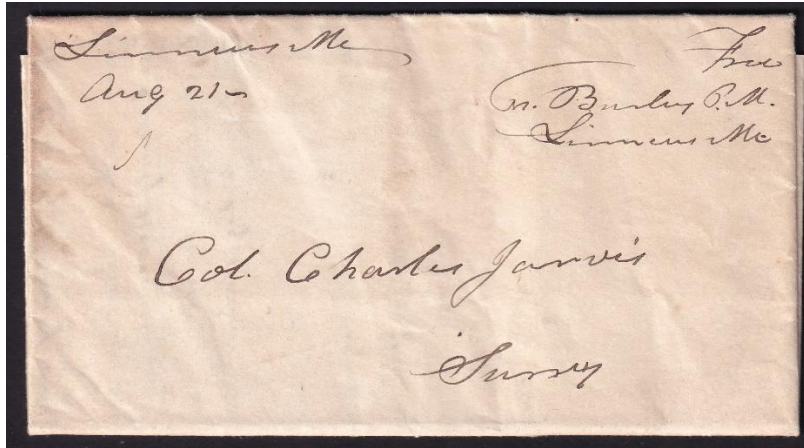 Linneus Me
Aug 21
Free
M. Burley P.M.
Linneus Me
Col. Charles Jarvis
Surry